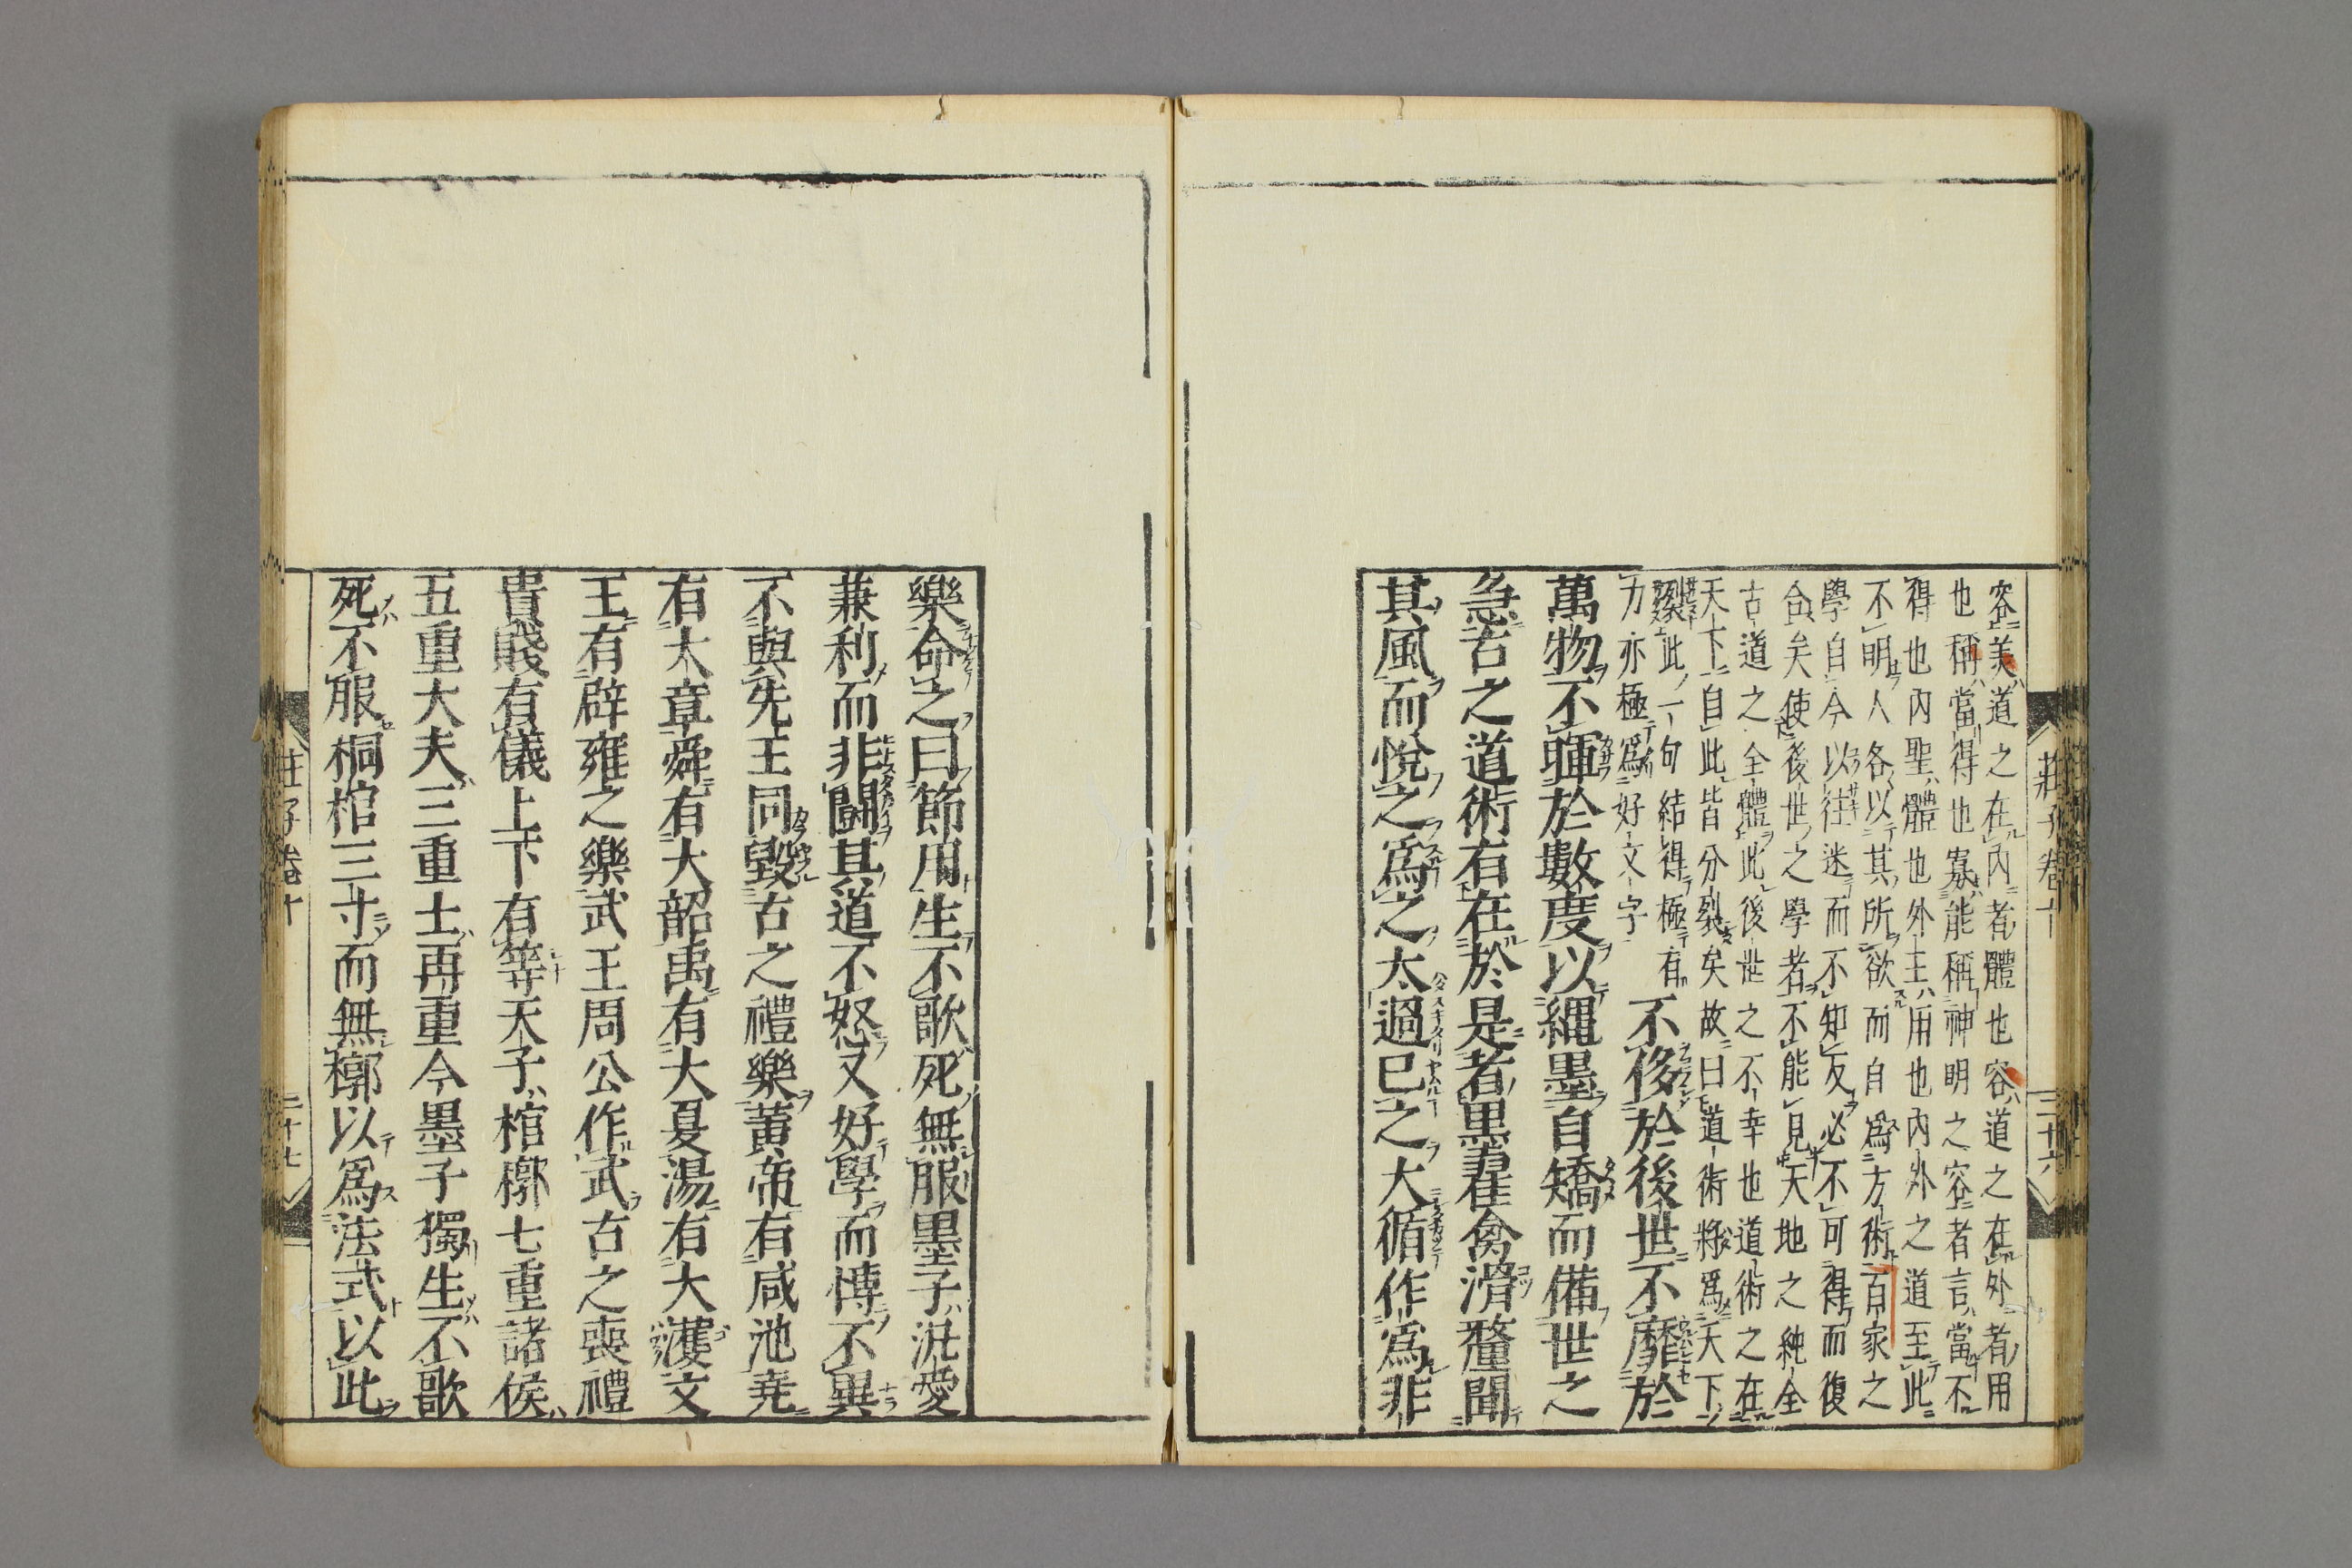 莊子卷十
三十六
容美道之在內者體也容道之在外者用
也稱當得也寡能稱神明之容者言當不
得也內聖體也外王用也內外之道至此
不明人各以其所欲而自爲方術百家之
學自今以往迷而不知反必不可得而復
合矣使後世之學者不能見天地之純全
古道之全體此後世之不幸也道術之在
天下自此皆分裂矣故曰道術將爲天下
裂此一句結得極有
力亦極爲好文字
不侈於後世不靡於
萬物不暉於數度以繩墨自矯而備世之
急古之道術有在於是者墨翟禽滑釐聞
其風而悅之爲之太過已之大循作爲非
樂命之曰節用生不歌死無服墨子汎愛
兼利而非鬪其道不怒又好學而博不異
不與先王同毀古之禮樂黃帝有咸池堯
有大章舜有大韶禹有大夏湯有大濩文
王有辟雍之樂武王周公作武古之喪禮
貴賤有儀上下有等天子棺槨七重諸侯
五重大夫三重士再重今墨子獨生不歌
死不服桐棺三寸而無槨以爲法式以此
莊子卷十
三十七